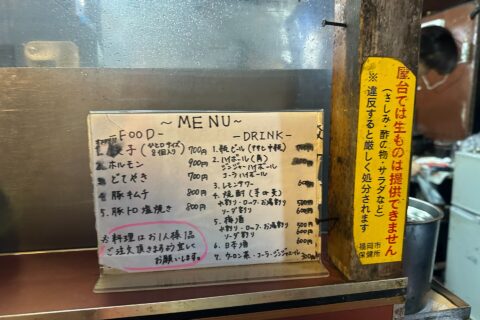 ~MENU~
-FOOD-
餃子(ひと口サイズ 8個入り) 700円
ホルモン 900円
3. どてやき 700円
4. 豚キムチ 800円
5. 豚トロ塩焼き 800円
お料理はお1人様1品
ご注文頂きますよう宜しく
お願いします。
-DRINK-
1. 瓶ビール
2. ハイボール(角)
ジンジャーハイボール
コーラハイボール
3. レモンサワー 600円
4. 焼酎(芋or麦)
水割り・ロック・お湯割り 500円
ソーダ割り 600円
5. 梅酒
水割り・ロック・お湯割り 500円
ソーダ割り 600円
6. 日本酒 600円
7. ウーロン茶・コーラ・ジンジャエール 300円
屋台では生ものは提供できません
(さしみ・酢の物・サラダなど)
※違反すると厳しく処分されます
福岡市
保健所